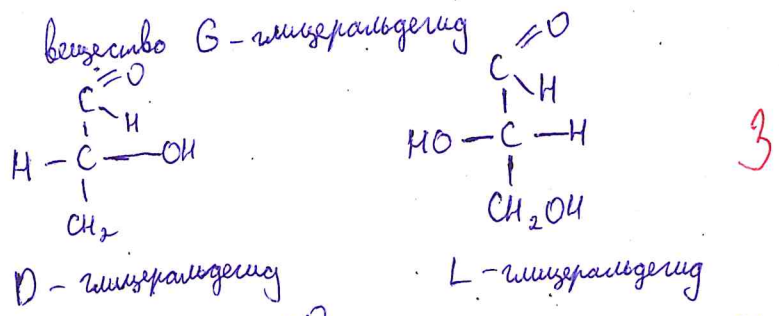 вещество G - глицеральдегид
C=O C=O
H H
H - C - OH HO - C - H
CH₂ CH₂OH
3
D - глицеральдегид L - глицеральдегид